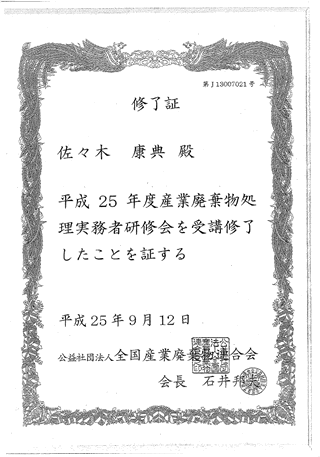 第J13007021号
修了証
佐々木 康典 殿
平成25年度産業廃棄物処
理実務者研修会を受講修了
したことを証する
平成25年9月12日
公益社団法人全国産業廃棄物連合会
会長 石井邦夫